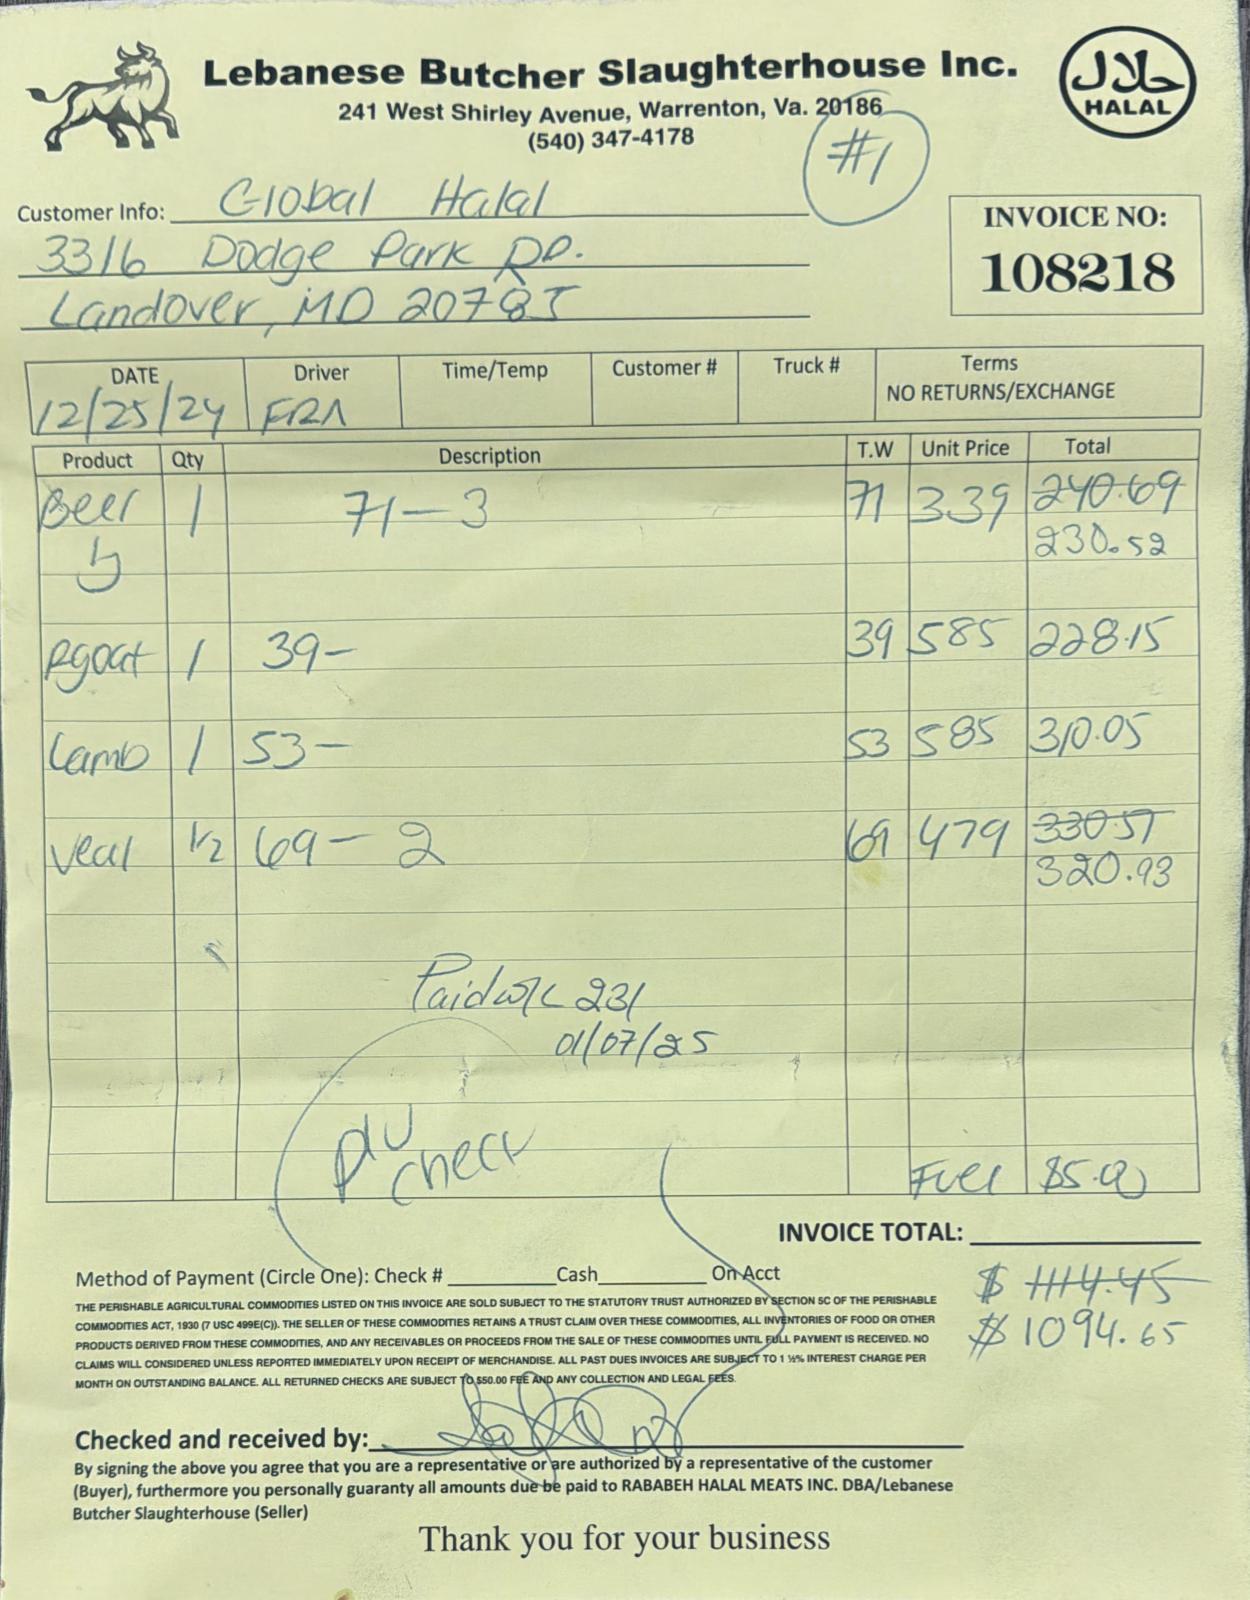 Lebanese Butcher Slaughterhouse Inc.
حلال
HALAL
241 West Shirley Avenue, Warrenton, Va. 20186
(540) 347-4178
#1
Customer Info: Global Halal
3316 Dodge Park RD.
Landover, MD 20785
INVOICE NO:
108218
DATE Driver Time/Temp Customer # Truck # Terms
12/25/24 NO RETURNS/EXCHANGE
Product Qty Description T.W Unit Price Total
Beef 1 71-3 71 339 240.69
230.52
Rgoat 1 39- 39 585 228.15
Lamb 1 53- 53 585 310.05
Veal 1/2 69-2 69 479 330.51
320.93
Paid 231
01/07/25
check
Fuel $5.00
INVOICE TOTAL:
$ 1114.45
$ 1094.65
Method of Payment (Circle One): Check # Cash On Acct
THE PERISHABLE AGRICULTURAL COMMODITIES LISTED ON THIS INVOICE ARE SOLD SUBJECT TO THE STATUTORY TRUST AUTHORIZED BY SECTION 5C OF THE PERISHABLE
COMMODITIES ACT, 1930 (7 USC 499E(C)). THE SELLER OF THESE COMMODITIES RETAINS A TRUST CLAIM OVER THESE COMMODITIES, ALL INVENTORIES OF FOOD OR OTHER
PRODUCTS DERIVED FROM THESE COMMODITIES, AND ANY RECEIVABLES OR PROCEEDS FROM THE SALE OF THESE COMMODITIES UNTIL FULL PAYMENT IS RECEIVED. NO
CLAIMS WILL CONSIDERED UNLESS REPORTED IMMEDIATELY UPON RECEIPT OF MERCHANDISE. ALL PAST DUES INVOICES ARE SUBJECT TO 1 ½% INTEREST CHARGE PER
MONTH ON OUTSTANDING BALANCE. ALL RETURNED CHECKS ARE SUBJECT TO $50.00 FEE AND ANY COLLECTION AND LEGAL FEES.
Checked and received by:
By signing the above you agree that you are a representative or are authorized by a representative of the customer
(Buyer), furthermore you personally guaranty all amounts due be paid to RABABEH HALAL MEATS INC. DBA/Lebanese
Butcher Slaughterhouse (Seller)
Thank you for your business